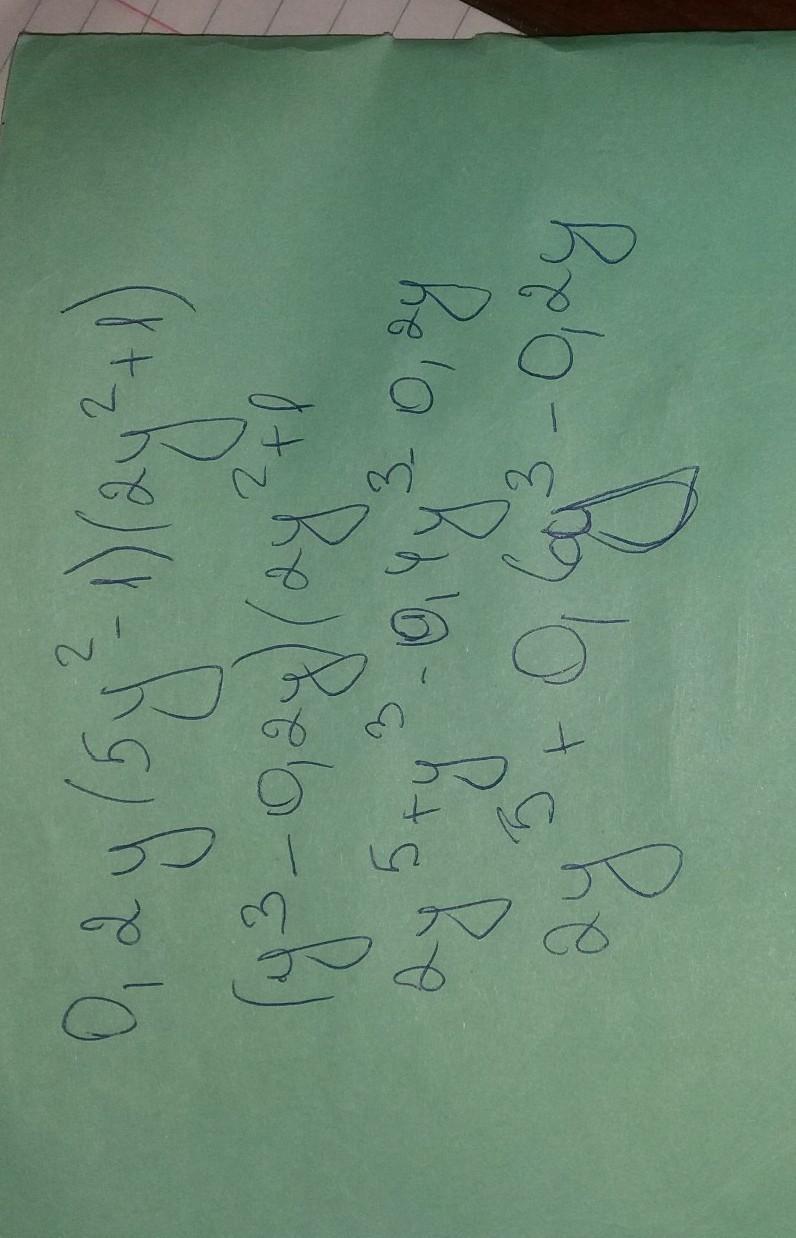 0,2y(5y²-1)(2y²+1)
(y³-0,2y)(2y²+1
2y⁵+y³-0,4y³-0,2y
2y⁵+0,6y³-0,2y